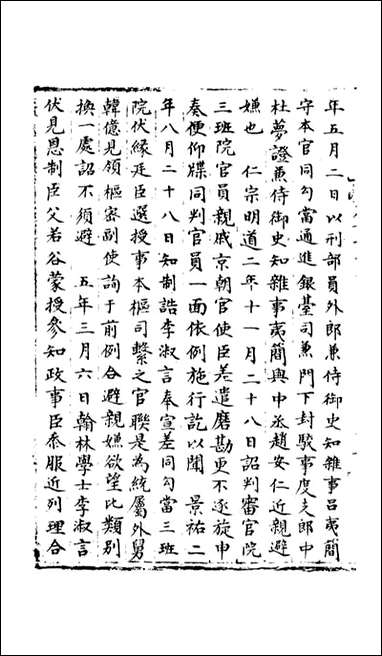 年五月二日以刑部員外郎兼侍御史知雜事吕夷簡
守本官同勾當通進銀䑓司兼門下封駮事度支郎中
杜夢證兼侍御史知雜事夷簡與中丞趙安仁近親避
嫌也　仁宗明道二年十一月二十八日詔判審官院
三班院官員親戚京朝官使臣差遣磨勘更不逐旋申
奏便仰牒同判官員一面依例施行訖以聞　景祐二
年八月二十八日知制誥李淑言奉宣差同勾當三班
院伏緣廷臣選授事本樞司繫之官聯是為統屬外舅
韓億見領樞宻副使詢于前例合避親嫌欲望比類别
換一處詔不須避　五年三月六日翰林學士李淑言
伏見恩制臣父若谷蒙授參知政事臣忝服近列理合